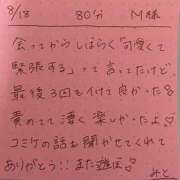 8/18 80分 M様
会ってからしばらく「可愛くて
緊張する」って言ってたけど、
最後3回もイけて良かった♡
責めてて凄く楽しかったよ♡
コミケの話も聞かせてくれて
ありがとう!!また遊ぼ♡
みと